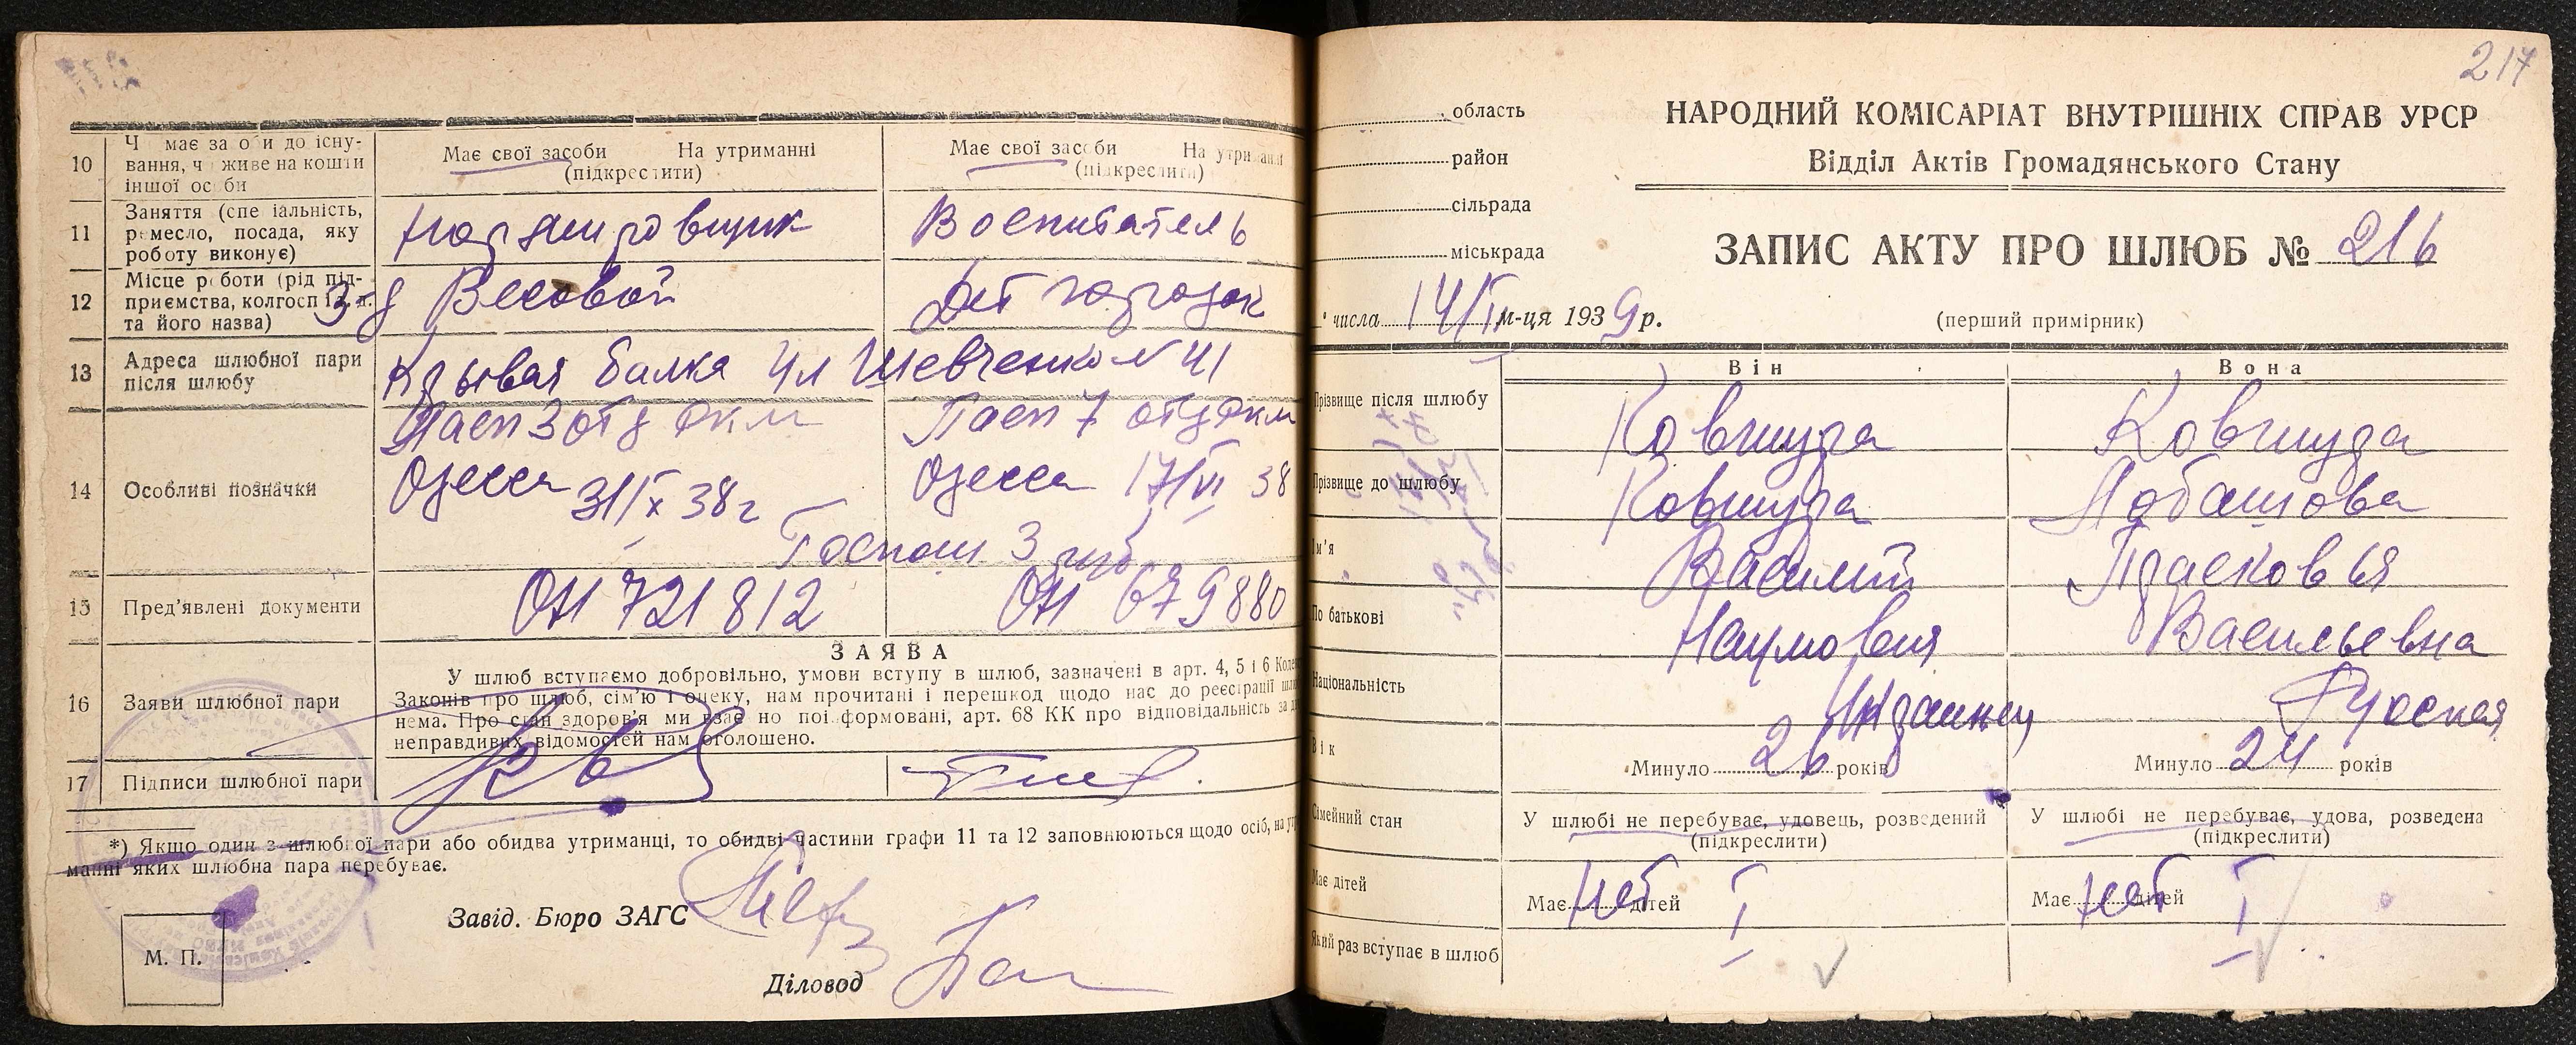 10
Ч має за о и до існу-
вання, ч живе на кошти
іншої ос би
Має свої засоби На утриманні
(підкреслити)
Має свої засоби На утриманні
(підкреслити)
11
Заняття (спе іальність,
ремесло, посада, яку
роботу виконує)
Воспитатель
12
Місце роботи (рід під-
приємства, колгосп і т. д.
та його назва)
З-д Весовой
Дет городок
13
Адреса шлюбної пари
після шлюбу
Крывая балка Ул Шевченко № 41
14
Особливі позначки
Пасп 3 отд ркм
Одесса 31/X 38 г
Пасп 7 отд ркм
Одесса 17/VI 38
Госпош 3 руб
15
Пред'явлені документи
721812
679880
ЗАЯВА
16
Заяви шлюбної пари
У шлюб вступаємо добровільно, умови вступу в шлюб, зазначені в арт. 4, 5 і 6
Законів про шлюб, сім'ю і опеку, нам прочитані і перешкод щодо нас до реєстрації
нема. Про стан здоров'я ми взає но поі формовані, арт. 68 КК про відповідальність за
неправдивих відомостей нам оголошено.
17
Підписи шлюбної пари
*) Якщо один з шлюбної пари або обидва утриманці, то обидві частини графи 11 та 12 заповнюються щодо осіб, на
манні яких шлюбна пара перебуває.
Завід. Бюро ЗАГС
М. П.
Діловод
217
область
район
сільрада
міськрада
НАРОДНИЙ КОМІСАРІАТ ВНУТРІШНІХ СПРАВ УРСР
Відділ Актів Громадянського Стану
ЗАПИС АКТУ ПРО ШЛЮБ № 216
числа 14/II м-ця 1939 р.
(перший примірник)
Він
Вона
Прізвище після шлюбу
Ковшура
Ковшура
Прізвище до шлюбу
Ковшура
Лобашова
Ім'я
Василий
Прасковья
По батькові
Наумович
Васильевна
Національність
Украинец
Русская
Вік
Минуло 26 років
Минуло 24 років
Сімейний стан
У шлюбі не перебуває, удовець, розведений
(підкреслити)
У шлюбі не перебуває, удова, розведена
(підкреслити)
Має дітей
Має нет дітей
Має нет дітей
Який раз вступає в шлюб
I
I